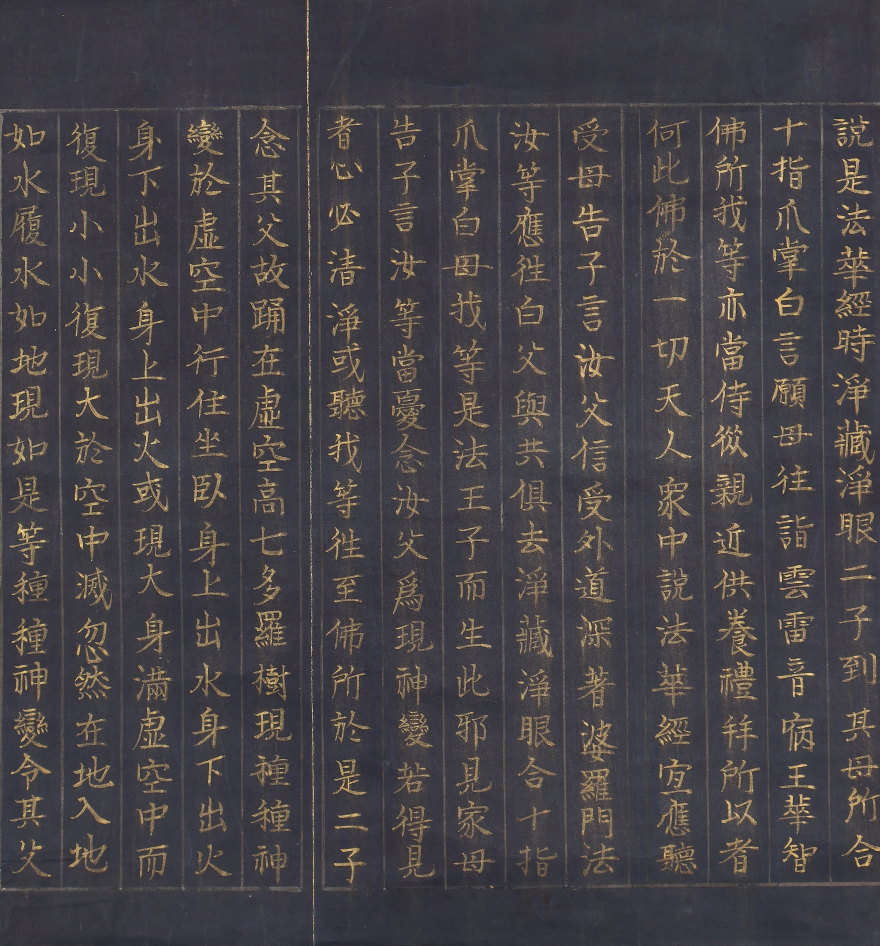 說是法華經時淨藏淨眼二子到其母所合
十指爪掌白言願母往詣雲雷音宿王華智
佛所我等亦當侍從親近供養禮拜所以者
何此佛於一切天人衆中說法華經宜應聽
受母告子言汝父信受外道深著婆羅門法
汝等應往白父與共俱去淨藏淨眼合十指
爪掌白母我等是法王子而生此邪見家母
告子言汝等當憂念汝父爲現神變若得見
者心必清淨或聽我等往至佛所於是二子
念其父故踊在虛空高七多羅樹現種種神
變於虛空中行住坐臥身上出水身下出火
身下出水身上出火或現大身滿虛空中而
復現小小復現大於空中滅忽然在地入地
如水履水如地現如是等種種神變令其父